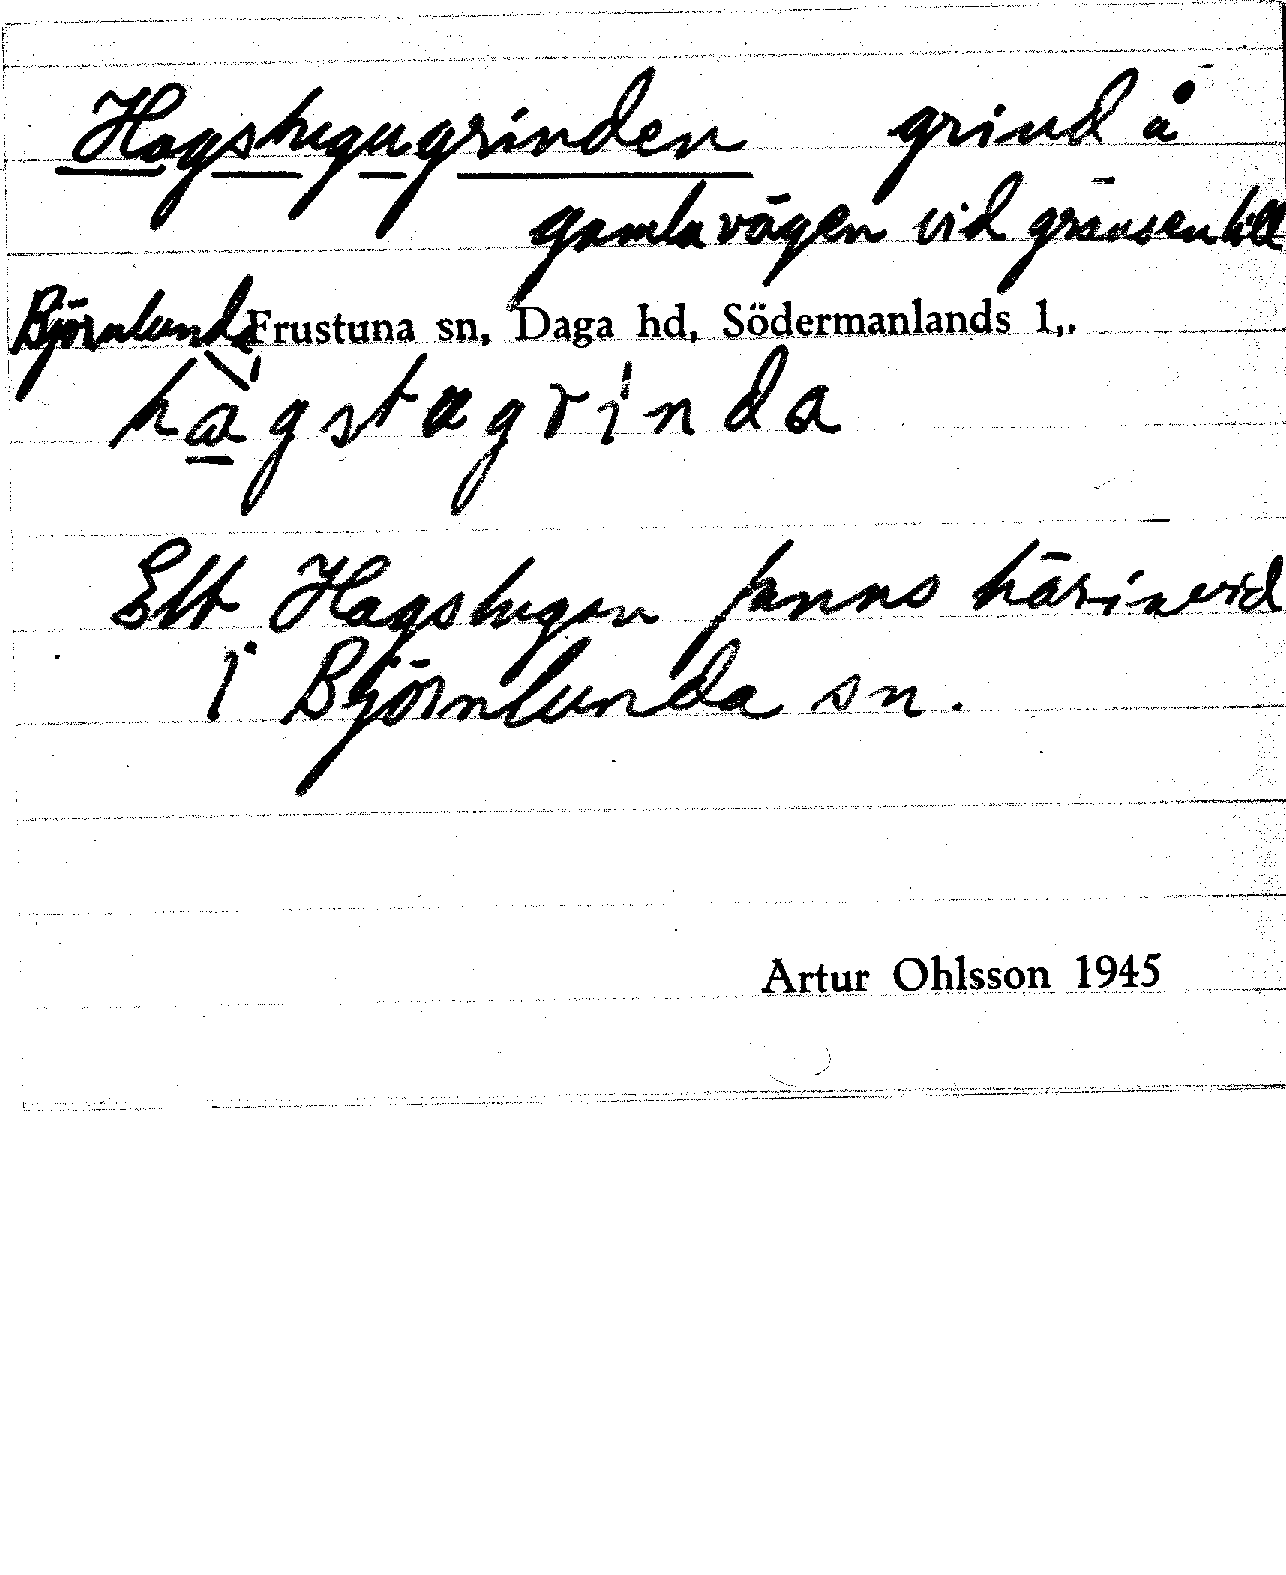 Hagstugugrinden grind å
gamla vägen vid gränsen till
Björnlunda Frustuna sn, Daga hd, Södermanlands l,.
hàgstagrinda
Ett Hagstugan fanns härinvid
i Björnlunda sn.
Artur Ohlsson 1945